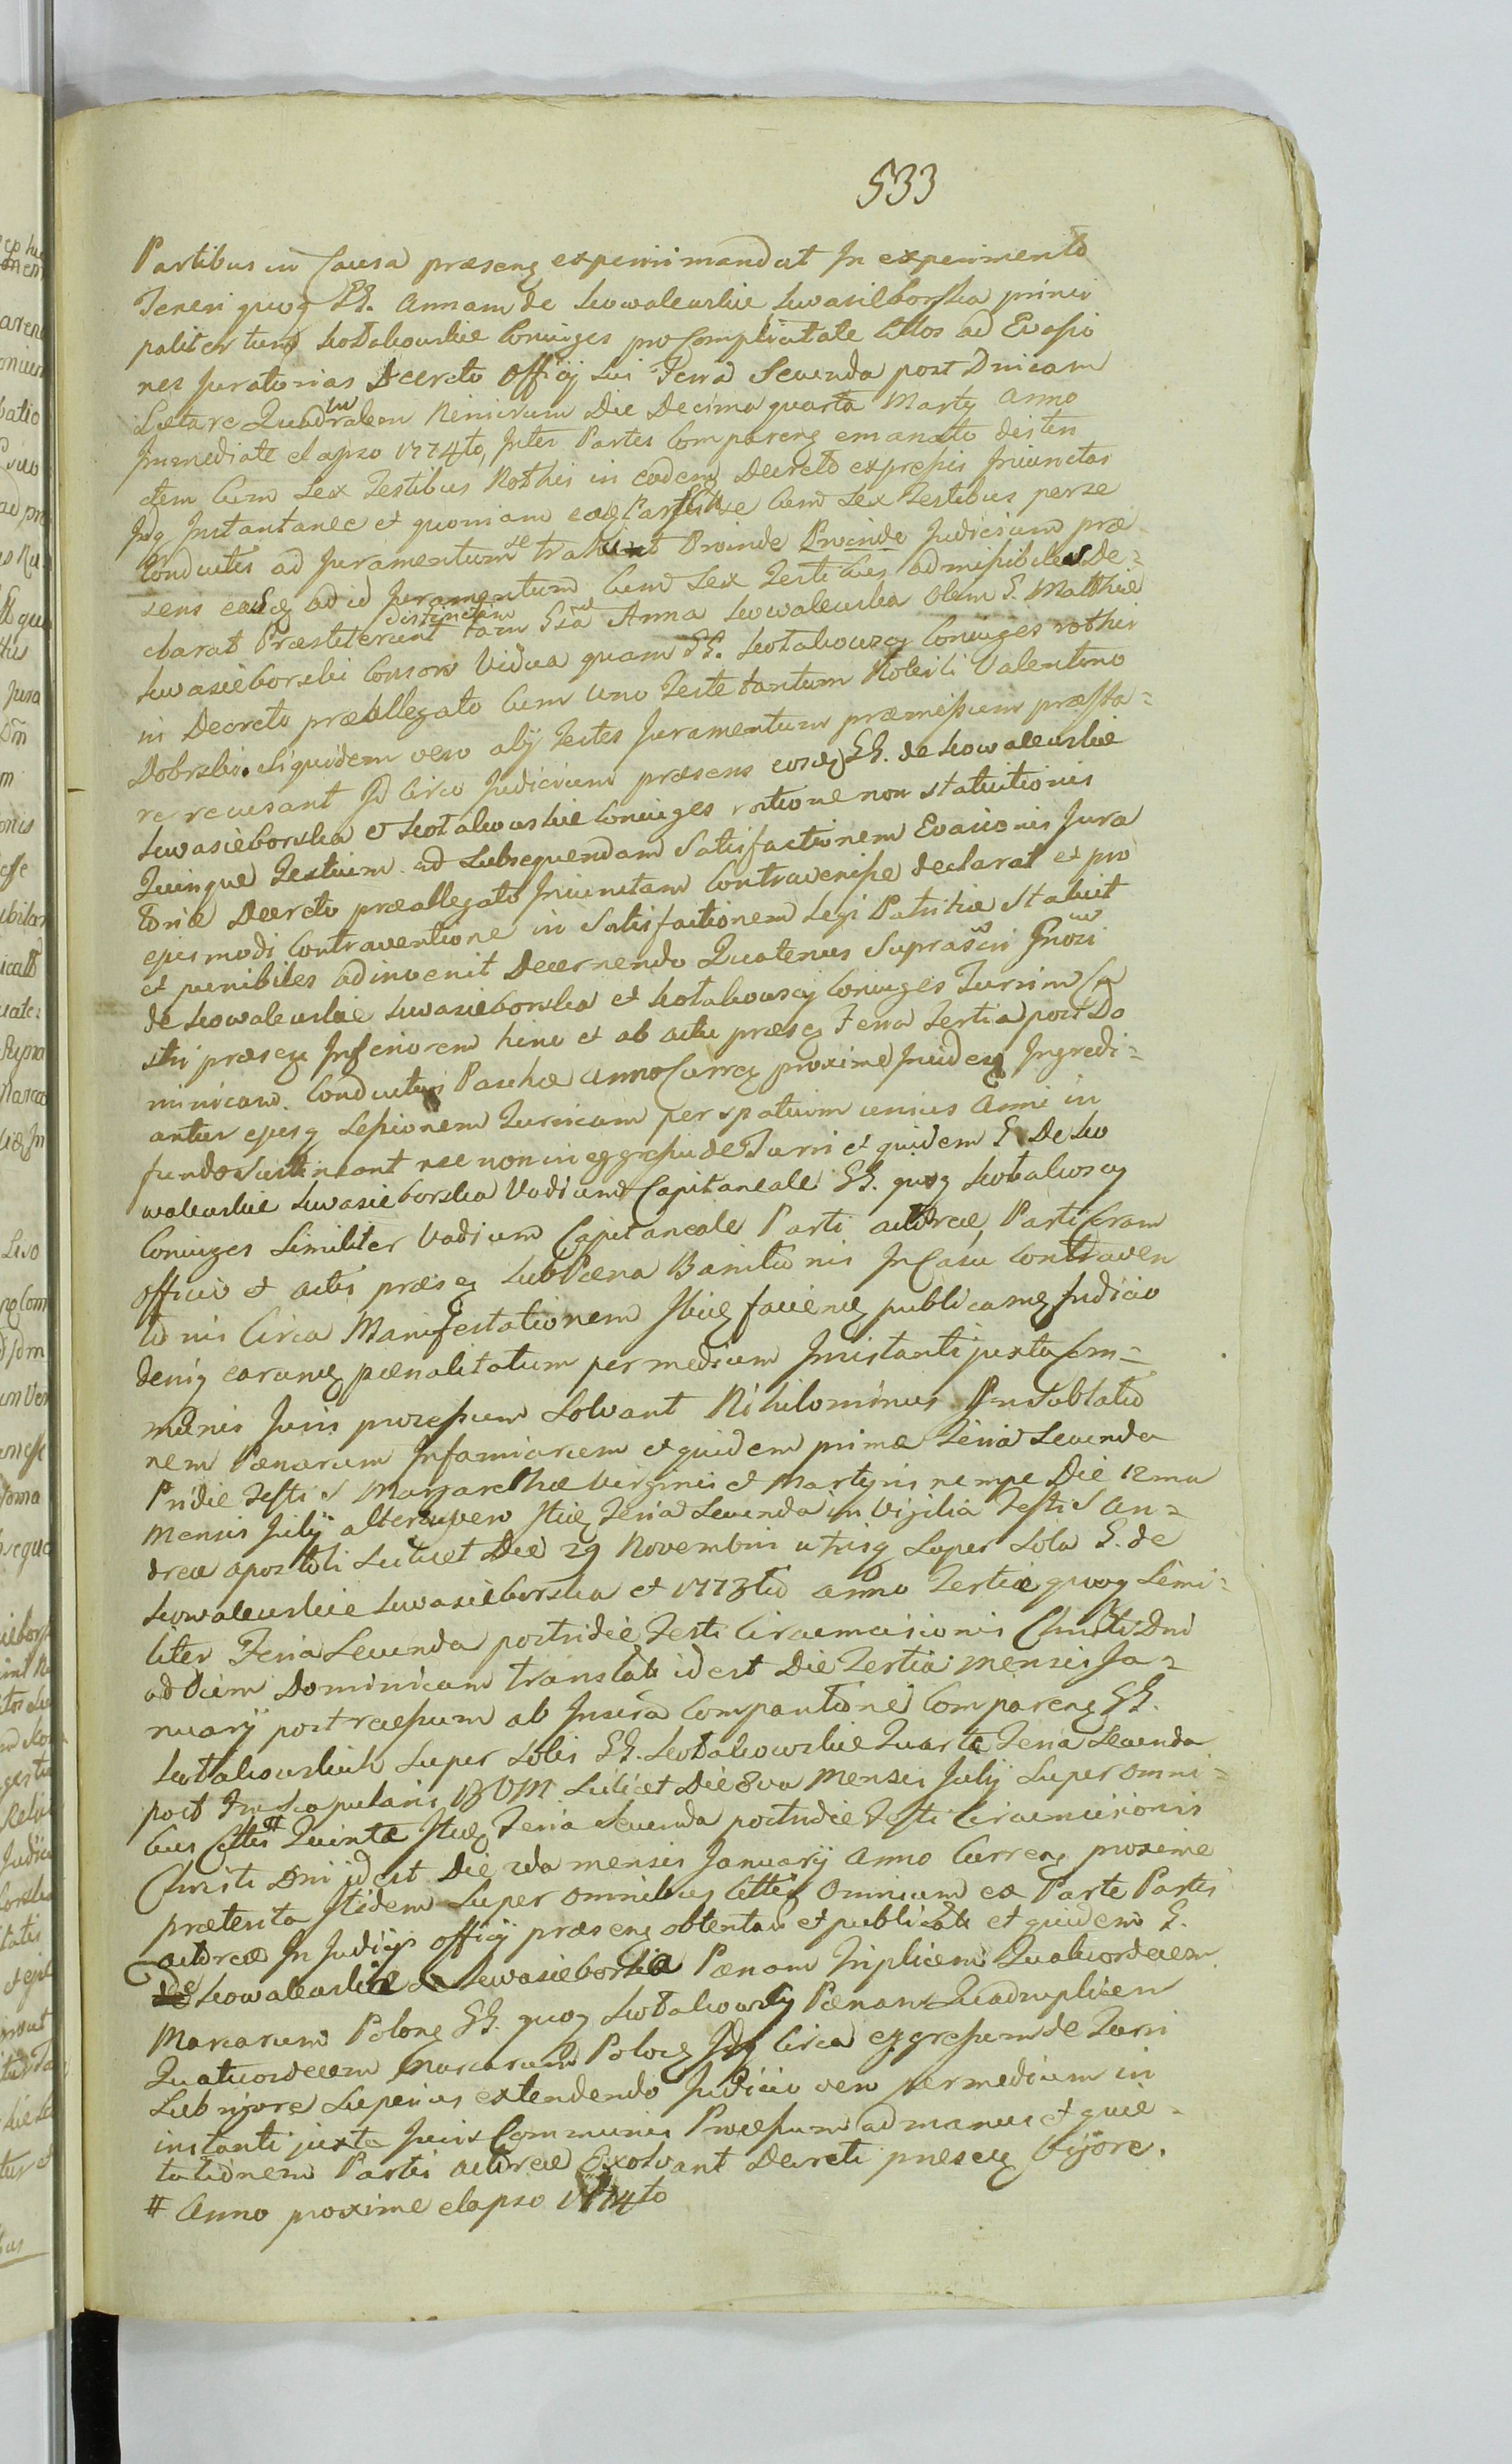 533
Partibus in Causa præseng experiri mandat In experimento
Teneri quoq GG. Annam de Kowalewskie Kwasieborska princi
paliter tum Kotakowskie Coniuges pro Complicitate Cittos ad Evasio
nes Juratorias Decreto Officij sui Feria Secunda post Dnicam
Lætare Quadralem Nimirum Die Decima quarta Martij Anno
Immediate elapso 1774to, Inter Partes Compareng emanato distin
ctem Cum Sex Testibus Rothis in eodem Decreto expressis Iniunctas
Idq Instantanee et quoniam eædem Partes Citæ Cum Sex Testibus per se
Conductis ad Juramentum se trahunt Proinde Proinde Judicium præ
sens easdq ad id Juramentum Cum Sex Testibus admissibiles De-
clarat Præstiterunt distinctim tam Gsa Anna Kowalewska Olim G. Matthiæ
Kwasieborski Consors Vidua quam GG. Kotakowscy Coniuges rothis
in Decreto præallegato Cum Uno Teste tantum Nobili Valentino
Dobrski. Siquidem vero alij Testes Juramentum præmissum præsta=
re recusant Id Circo Judicium præsens eosdq GG. de Kowalewskie
Kwasieborska et Kotakowskie Coniuges ratione non statuitionis
Quinque Testium ad Subsequendam Satisfactionem Evasionis Jura
toriæ Decreto præallegato Iniunctam Contravenisse declarat et pro
ejusmodi Contraventione in Satisfactionem Legi Patriæ Statuit
et punibiles adinvenit Decernendo Quatenus Suprascri Gnosi
de Kowalewskie Kwasieborska et Kotakowscy Coniuges Turrim Ca
stri præseng Inferiorem hinc et ab actu præseng Feria Tertia post Do
minicam Conductus Paschæ Anno Curreng proxime Incideng Ingredi=
antur ejusq Sessionem Turricam per spatium unius Anni in
fundo Sustineant nec non in eggressu de Turri et quidem G De Ko
walewskie Kwasieborska Vadium Capitaneale GG. quoq Kotakowscy
Coniuges Similiter Vadium Capitaneale Parti actoreæ, Parti Coram
officio et actis præseng sub Pæna Banitionis In Casu Contraven
tionis Circa Manifestationem Itidq facieng publicamq Judicio
deniq earumq pænalitatum per medium Inistanti juxta Com=
munis Juris processum Solvant Nihilominus In Sublatio
nem Pænarum Infamiarum et quidem primæ Feria Secunda
Pridie Festi S Margarethæ Virginis et Martyris nempe Die 12ma
Mensis Julij alterius vero Itidq Feria Secunda in Vigilia Festi S An=
dreæ apostoli Scilicet Die 29 Novembris utrisq Super Sola G. de
Kowalewskie Kwasieborska et 1773tio anno Tertiæ quoq Simi=
liter Feria Secunda postridie Festi Circumcisionis Christi Dni
ad diem Dominicam translati id est Die Tertia Mensis Ja=
nuarij post recessum ab Jnscra Comparitione Compareng GG.
Kotakowskich Super Solis GG. Kotakowskie Quartæ Feria Secunda
post Fm Scapularis BVM Scilicet Die 8va Mensis Julij Super omni=
bus Cittis # Quintæ Itidq Feria Secunda postridie Festi Circumcisionis
Christi Dni id est Die 2da mensis Januarij Anno Curreng proxime
præterita Itidem Super omnibus Cittis Omnium ex Parte Partis
actoreæ In Judicijs officij præseng obtentarum et publicatarum et quidem G.
de Kowalewskie Kwasieborska Pænam Triplicem Quatuordecem
Marcarum Polong GG. quoq Kotakowscy Pænam Quadruplicem
Quatuordecem Marcarum Polong Idq Circa eggressum de Turri
Sub rigore Superius extendendo Judicio vero per medium in
instanti juxta Juris Communis Processum ad manus et quie=
tationem Partis actoreæ Exolvant Decreti præseng Vigore.
# Anno proxime elapso 1774to